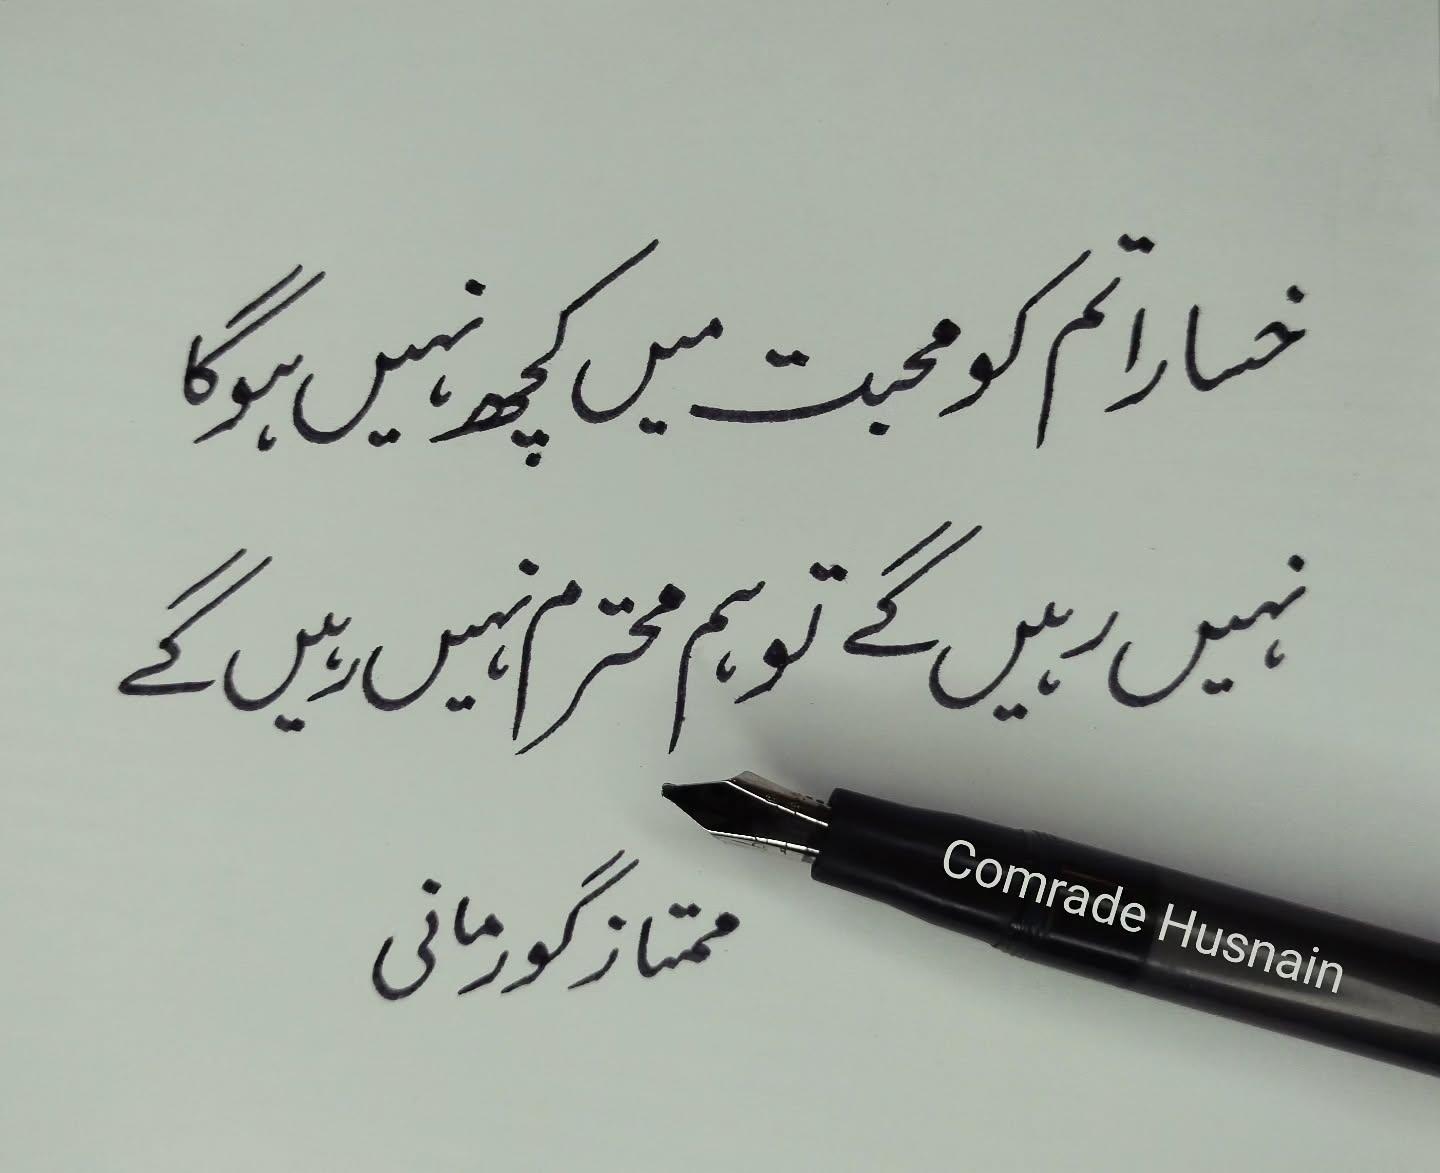 خسارا تم کو محبت میں کچھ نہیں ہوگا
نہیں رہیں گے تو ہم محترم نہیں رہیں گے
ممتاز گورمانی
Comrade Husnain